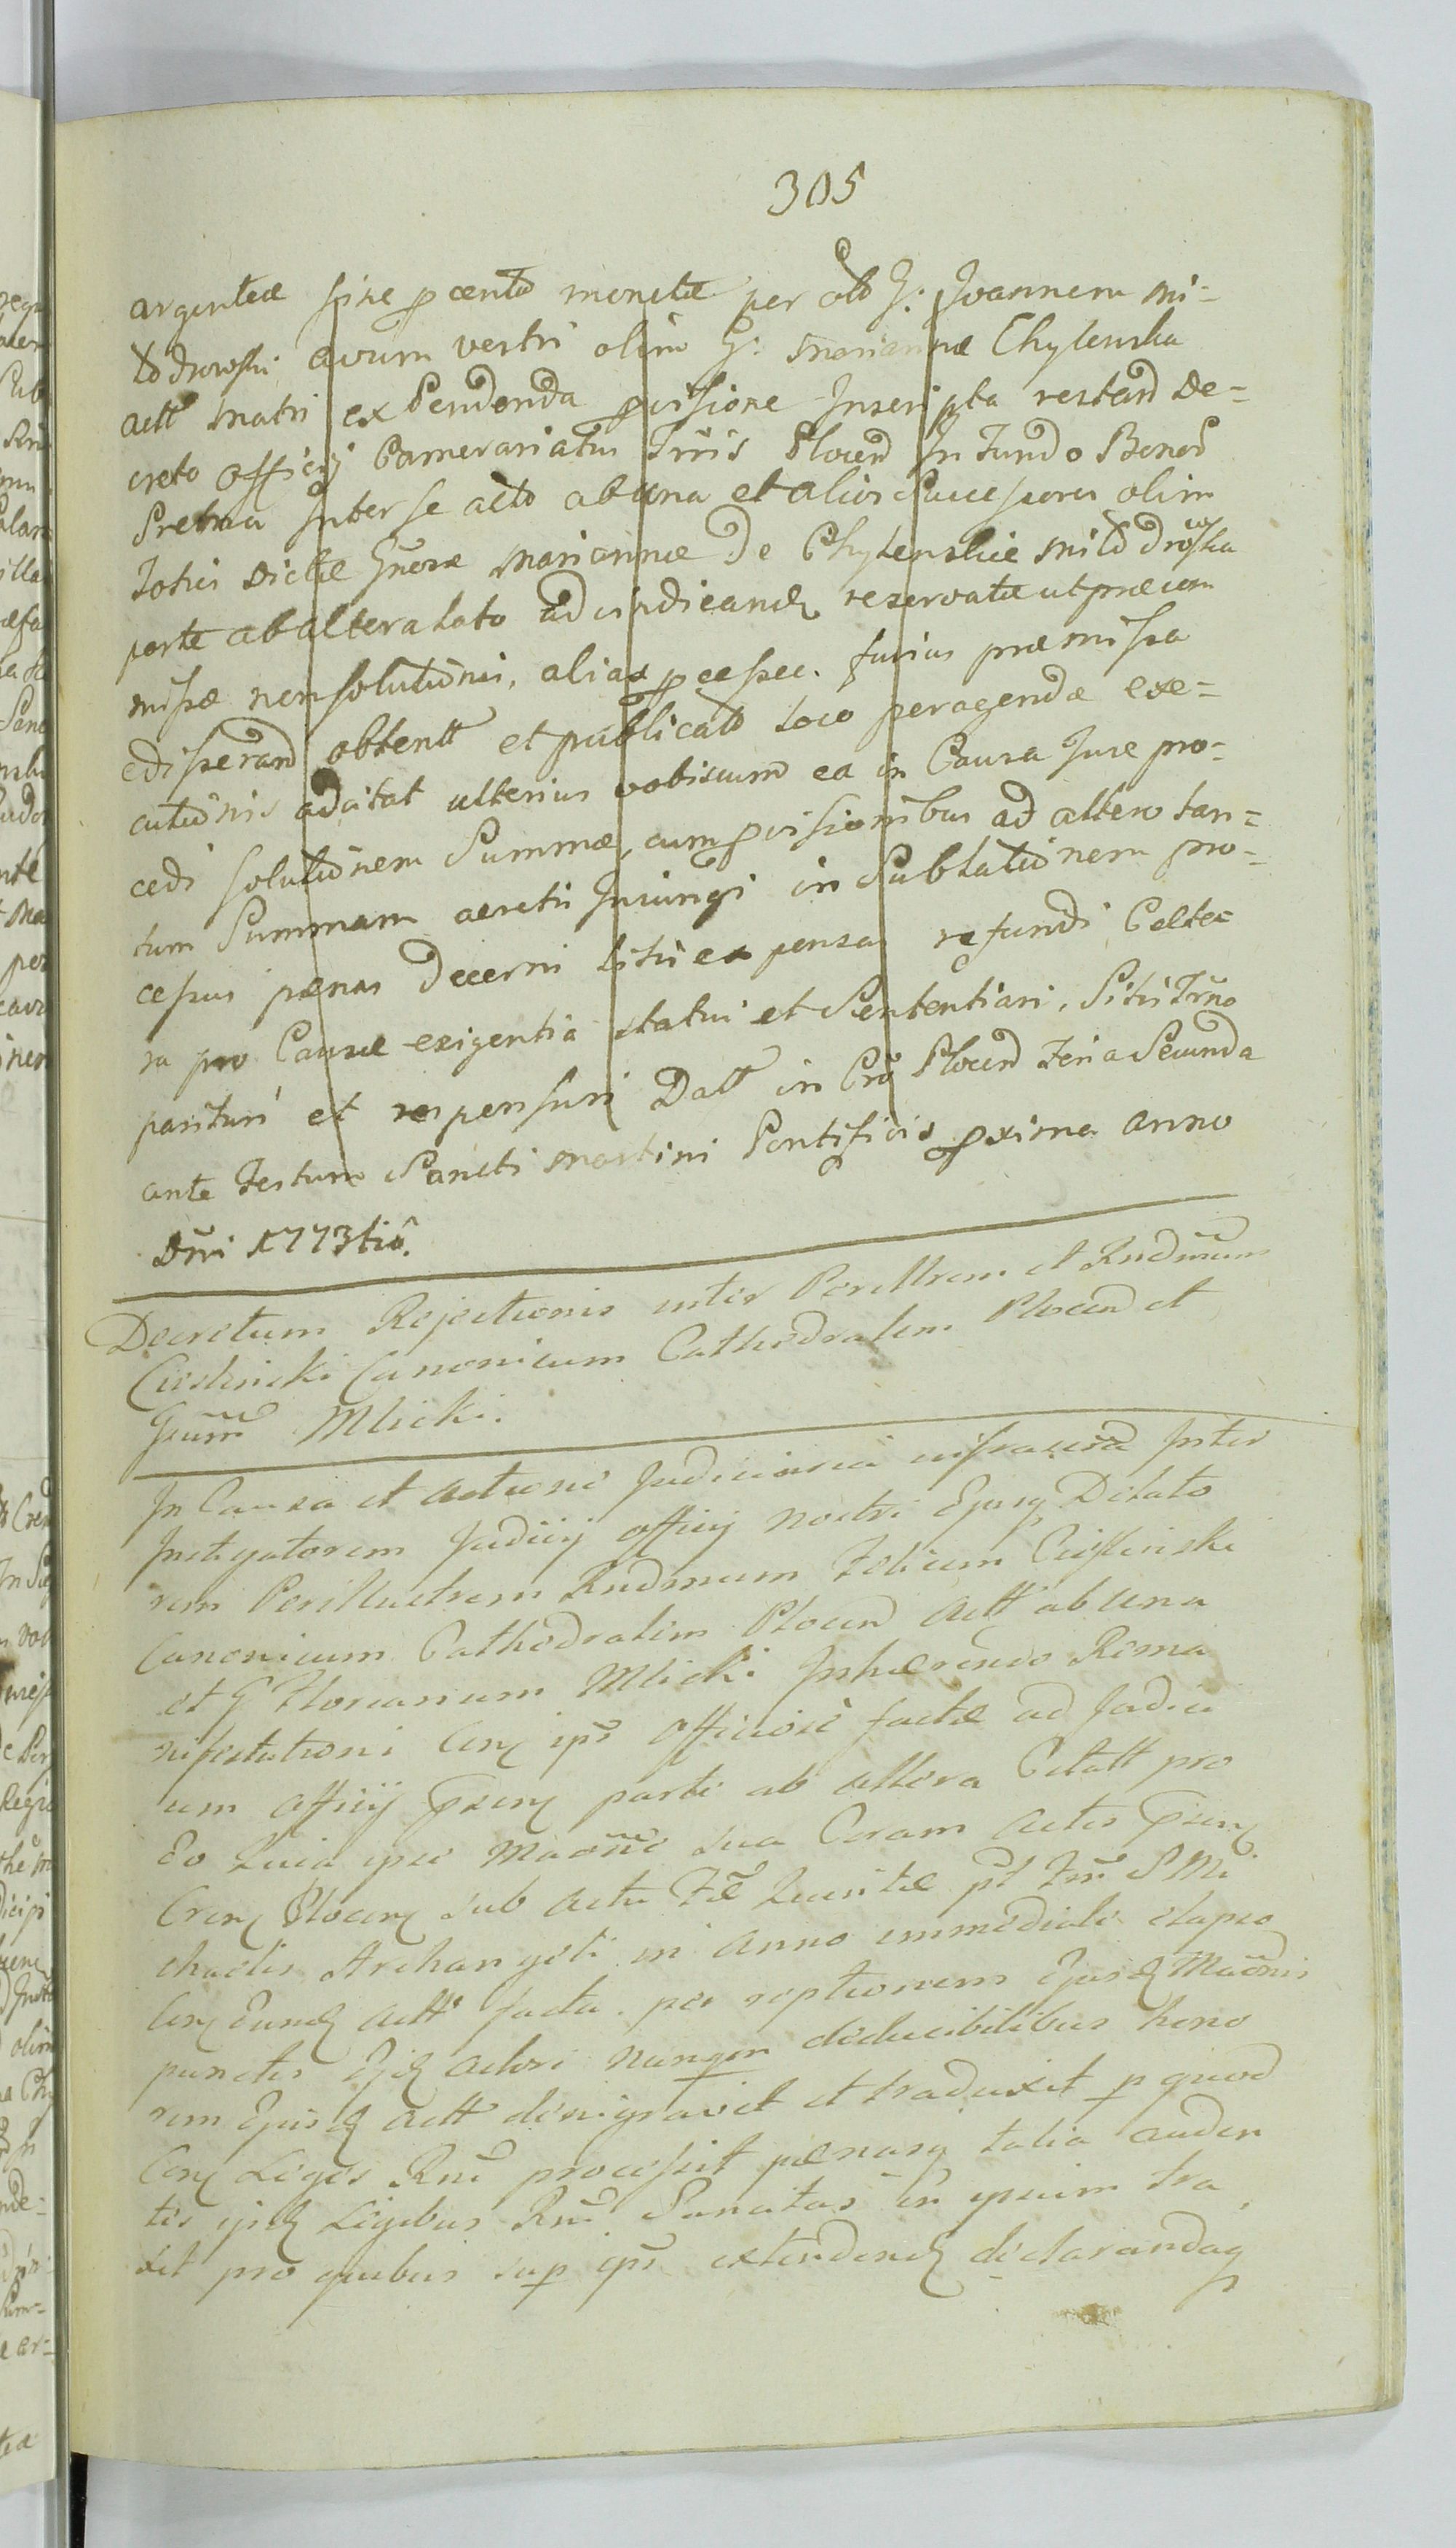 305
argenteæ sine p centa monetæ per olo G: Joannem Mi=
lodrowski avum vestri olim G: Mariannæ Chylenska
actt matri ex Pendenda pvisione Inscripta restand De=
creto Officij Camerariatus Trris Plocen In Fundo Bonor
Pretma Inter se acto ab una et alios Successores olim
Totius dictæ Gnosæ Mariannæ De Chylenskie Milodrowska
parte ab altera lato ad vindicand reservatæ ut præcon
missæ non solutionis, alias p ce spec. furius præmissa
edisserand obtentt et publicato loco peragendæ exe=
cutionis adcitat ulterius vobiscum ea in Causa Jure pro=
cedi solutionem Summæ, cum pvisionibus ad altero tan=
tum Summam accretis Iniungi in Sublationem pro=
cessus pænas decerni litis expensas refundi Cæte=
ra pro Causæ exigentia statui et Sententiari, Sitis Trno
parituri et responsuri Datt in Cro Plocen Feria Secunda
ante Festum Sancti Martini Pontificis pxima anno
Dni 1773tio.
Decretum Rejectionis inter Perillrem et Rndmum
Cieslinski Canonicum Cathedralem Plocen et
Gsum Mlicki.
In Causa et actione Judiciaria infrascra Inter
Instigatorem Judicij officij nostri Ejusq Delato
rem Perillustrem Rndmum Felicem Cieslinski
Canonicum Cathedralem Plocen actt ab una
et G Florianum Mlicki Inhærendo Rema
nifestationi Cons ips officiose factæ ad Judici
um officij psens parte ab altera Citatt pro
Eo Quia ipse Maoñe sua Coram actis psens
Crens Plocens sub actu Fæ Quintæ pt Fm S Mi
chaelis Archangeli in anno immediate elapso
Cons Eund actt facta. per reptionem Ejusd Maonis
punctis Ejd actori nunqm deducibilibus hono
rem Ejusd actt denigravit et traduxit p quod
Cons Leges Rni processit pænasq talia auden
tes ijsd Legibus Rni Sancitas in ipsum tra
xit pro quibus sup ips extendend declarandaq